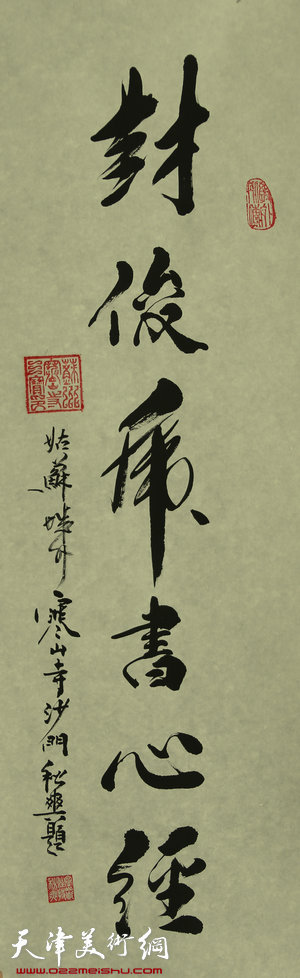 封俊虎書心經
姑蘇城外寒山寺沙門秋爽題
天津美術網
www.022meishu.com